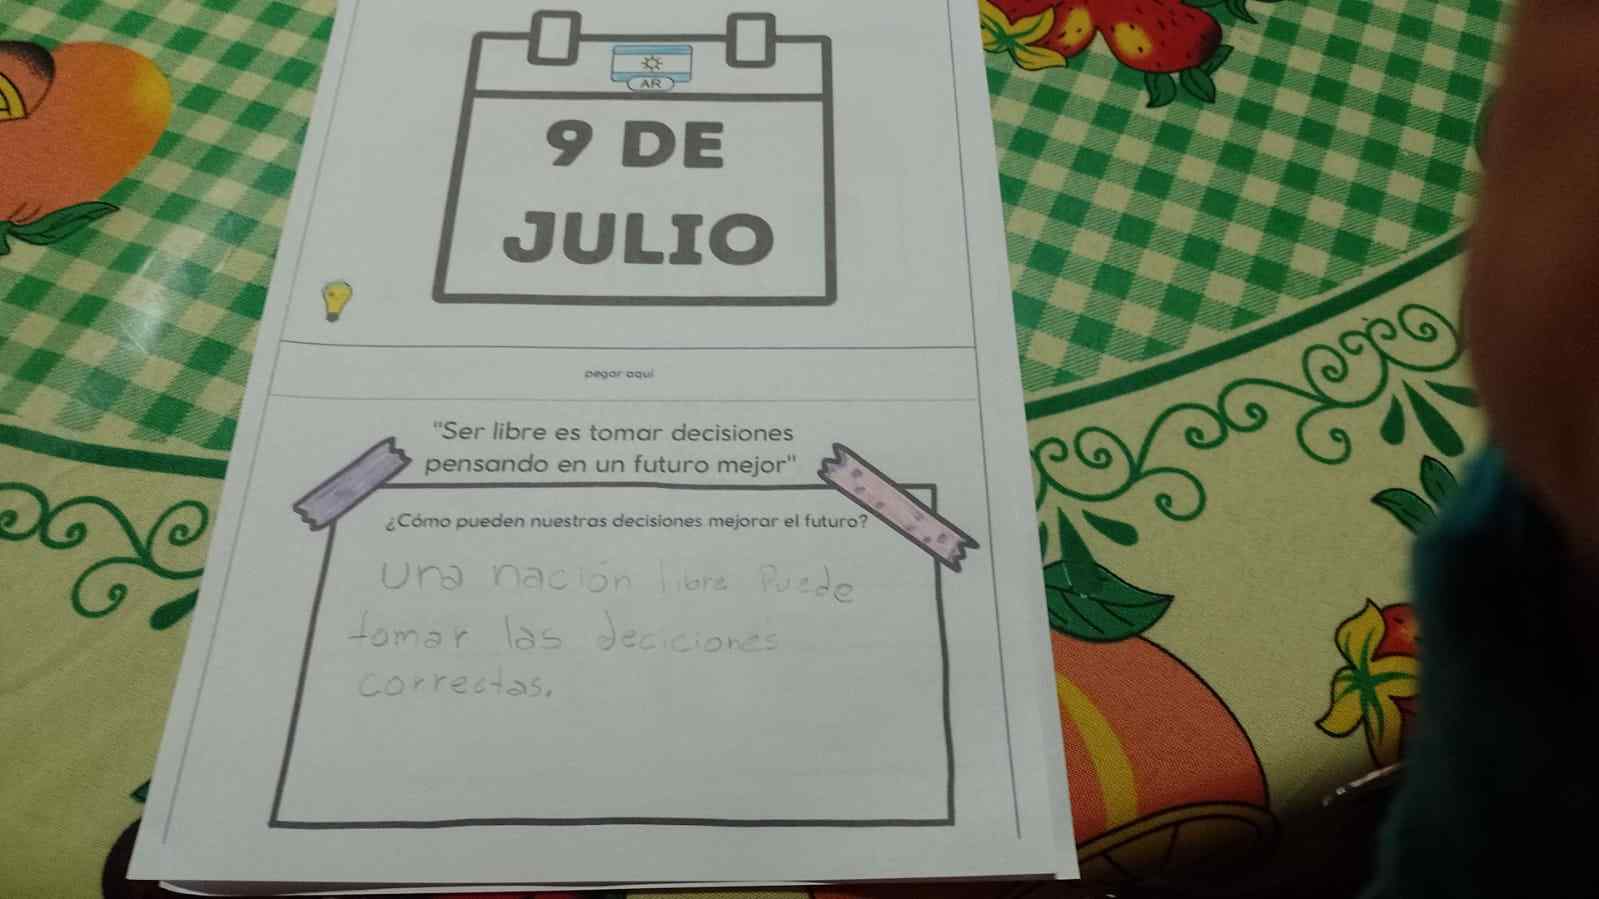 AR
9 DE
JULIO
pegar aquí
"Ser libre es tomar decisiones
pensando en un futuro mejor"
¿Cómo pueden nuestras decisiones mejorar el futuro?
Una nación libre Puede
tomar las deciciones
correctas.